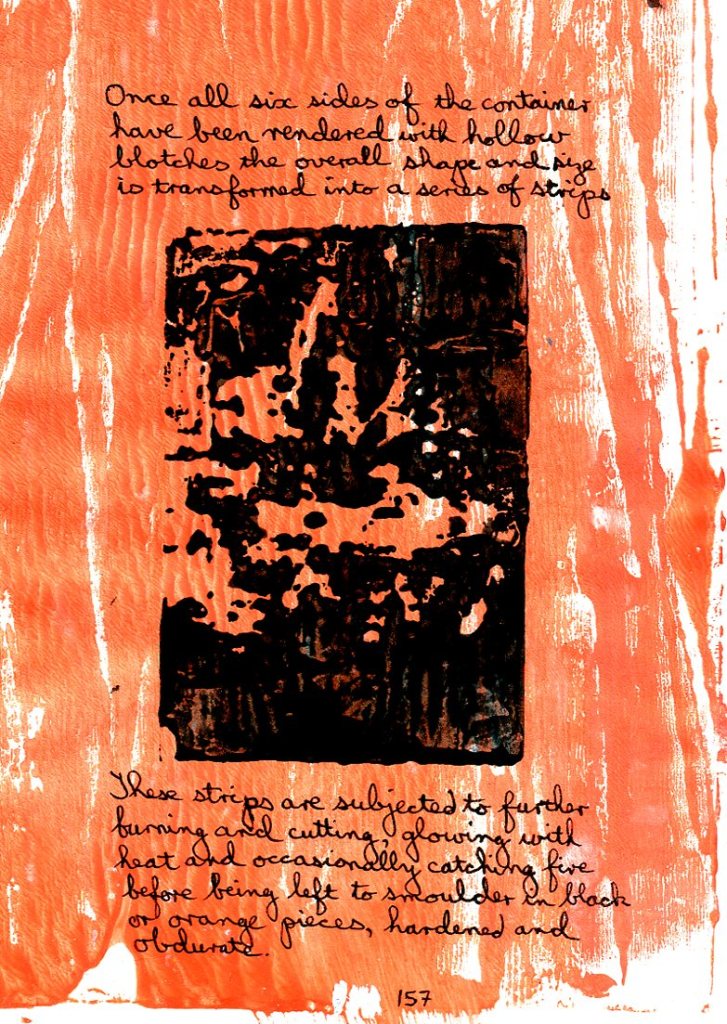 Once all six sides of the container
have been rendered with hollow
blotches the overall shape and size
is transformed into a series of strips
These strips are subjected to further
burning and cutting, glowing with
heat and occasionally catching fire
before being left to smoulder in black
or orange pieces, hardened and
obdurate.
157